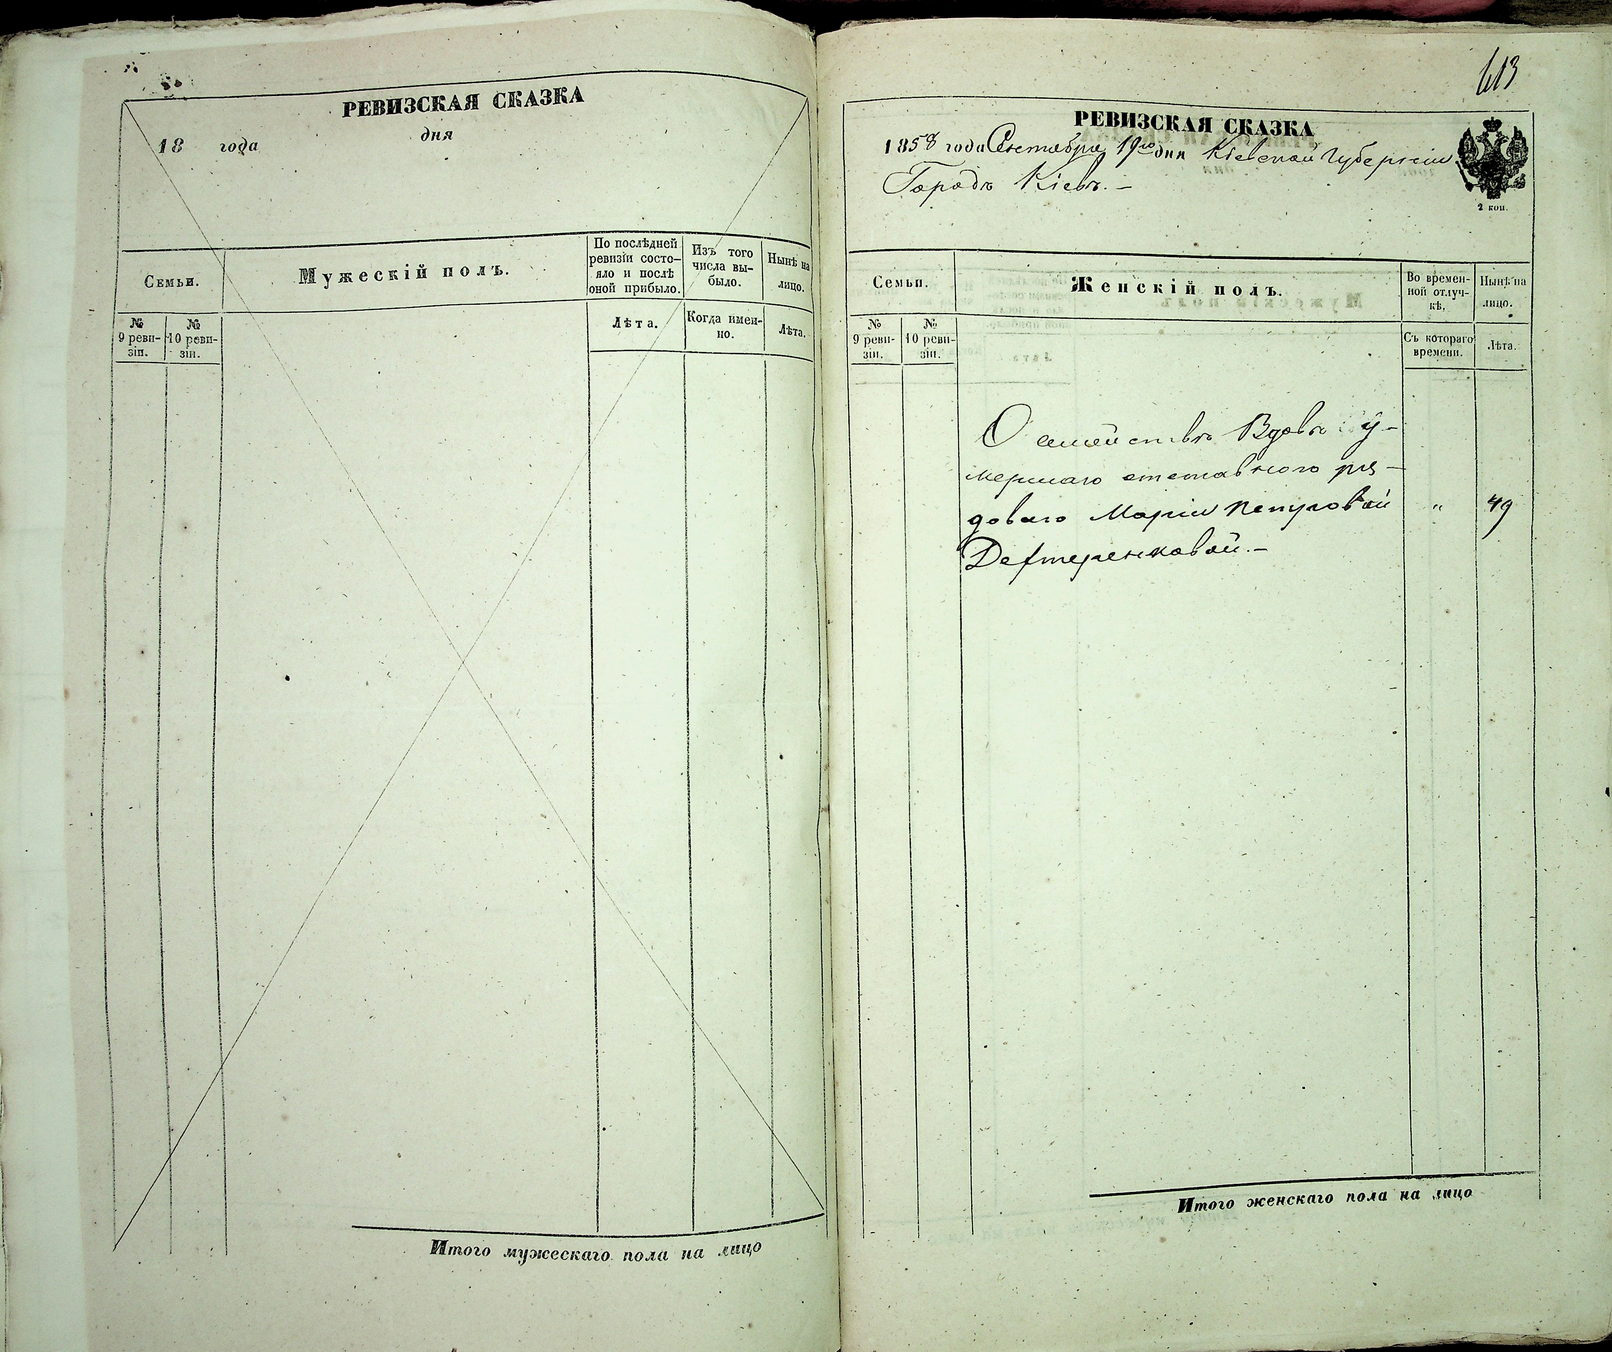 РЕВИЗСКАЯ СКАЗКА
18 года дня
Семьи.
Мужескій полъ.
По послѣдней
ревизіи состо-
яло и послѣ
оной прибыло.
Изъ того
числа вы-
было.
Нынѣ на
лицо.
№
9 реви-
зіи.
№
10 реви-
зіи.
Лѣта.
Когда имен-
но.
Лѣта.
Итого мужескаго пола на лицо
613
РЕВИЗСКАЯ СКАЗКА
1858 года Сентября 19го дня Кіевской Губерніи
Городъ Кіевъ. –
2 коп.
Семьи.
Женскій полъ.
Во времен-
ной отлуч-
кѣ.
Нынѣ на
лицо.
№
9 реви-
зіи.
№
10 реви-
зіи.
Съ котораго
времени.
Лѣта.
О семействѣ Вдовѣ у-
мершаго отставного ря-
доваго Маріи Петровой " 49
Дехтеренковой. –
Итого женскаго пола на лицо